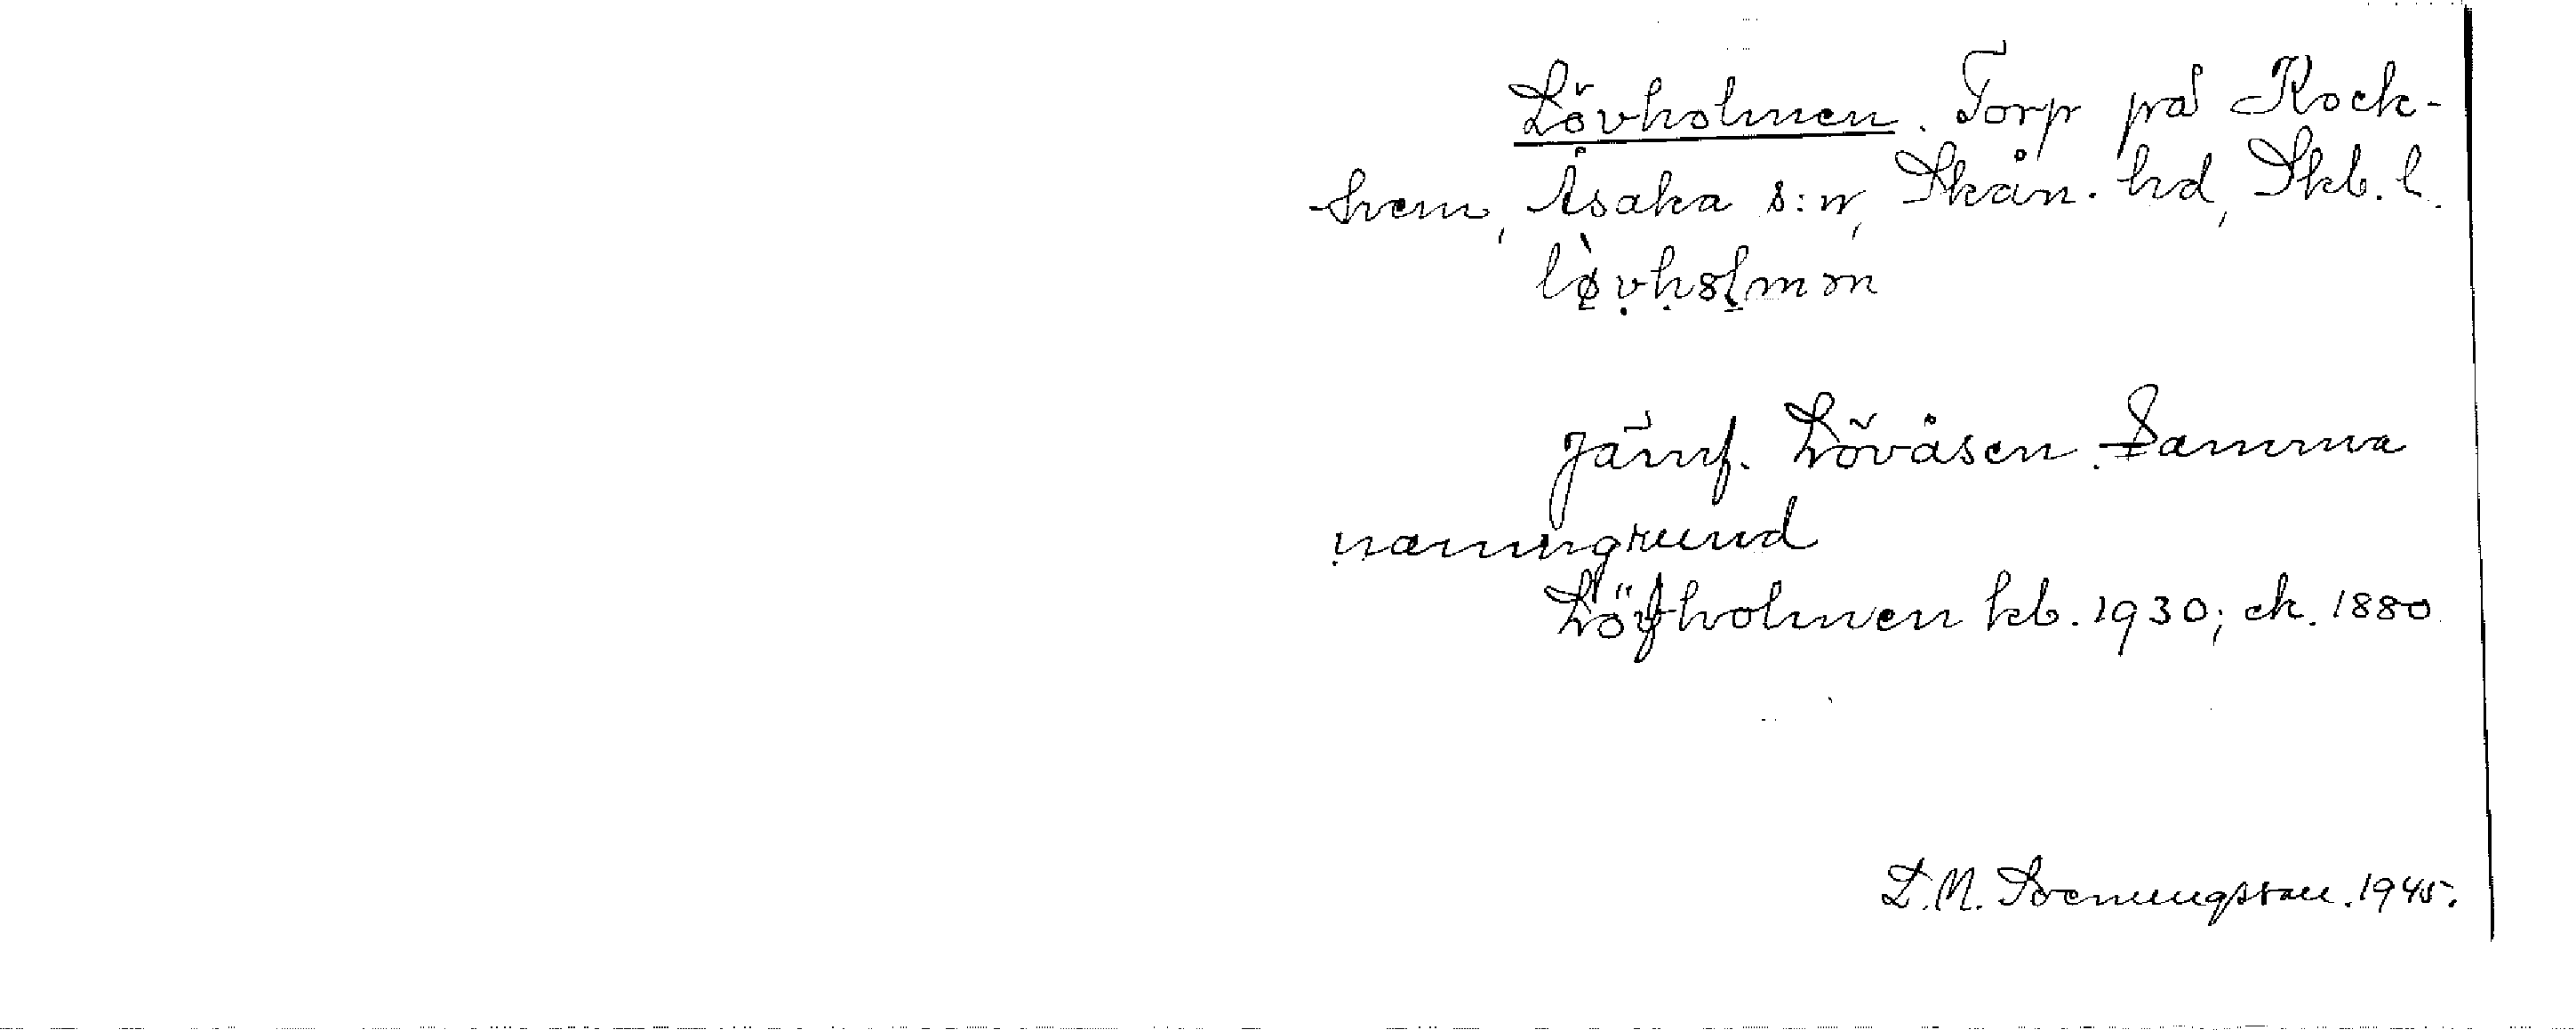 Lövholmen. Torp på Rock-
hem, Åsaka s:n, Skån. hd, Skb. l.
Jämf. Lövåsen. Samma
namngrund
Löfholmen kb. 1930; ek. 1880
L. M. Svenungsson. 1945.